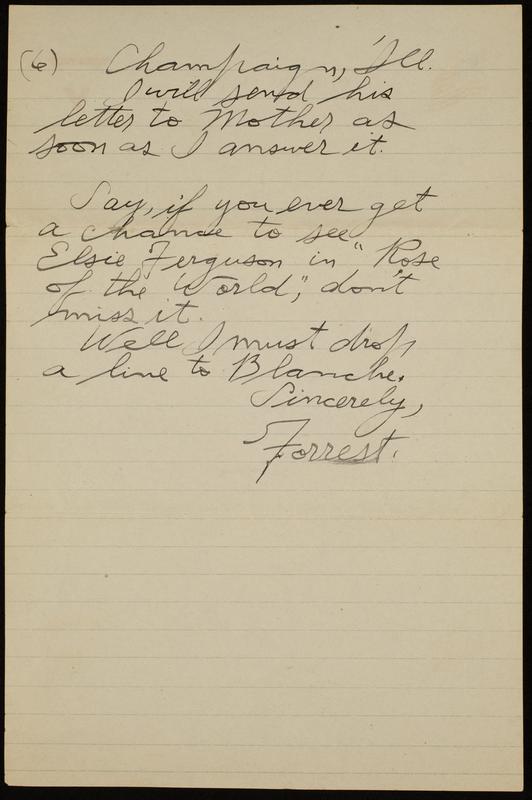 (6) Champaign, Ill.
I will send his
letter to Mother as
soon as I answer it.
Say, if you ever get
a chance to see
Elsie Ferguson in "Rose
of the World", don't
miss it.
Well I must drop
a line to Blanche.
Sincerely,
Forrest.